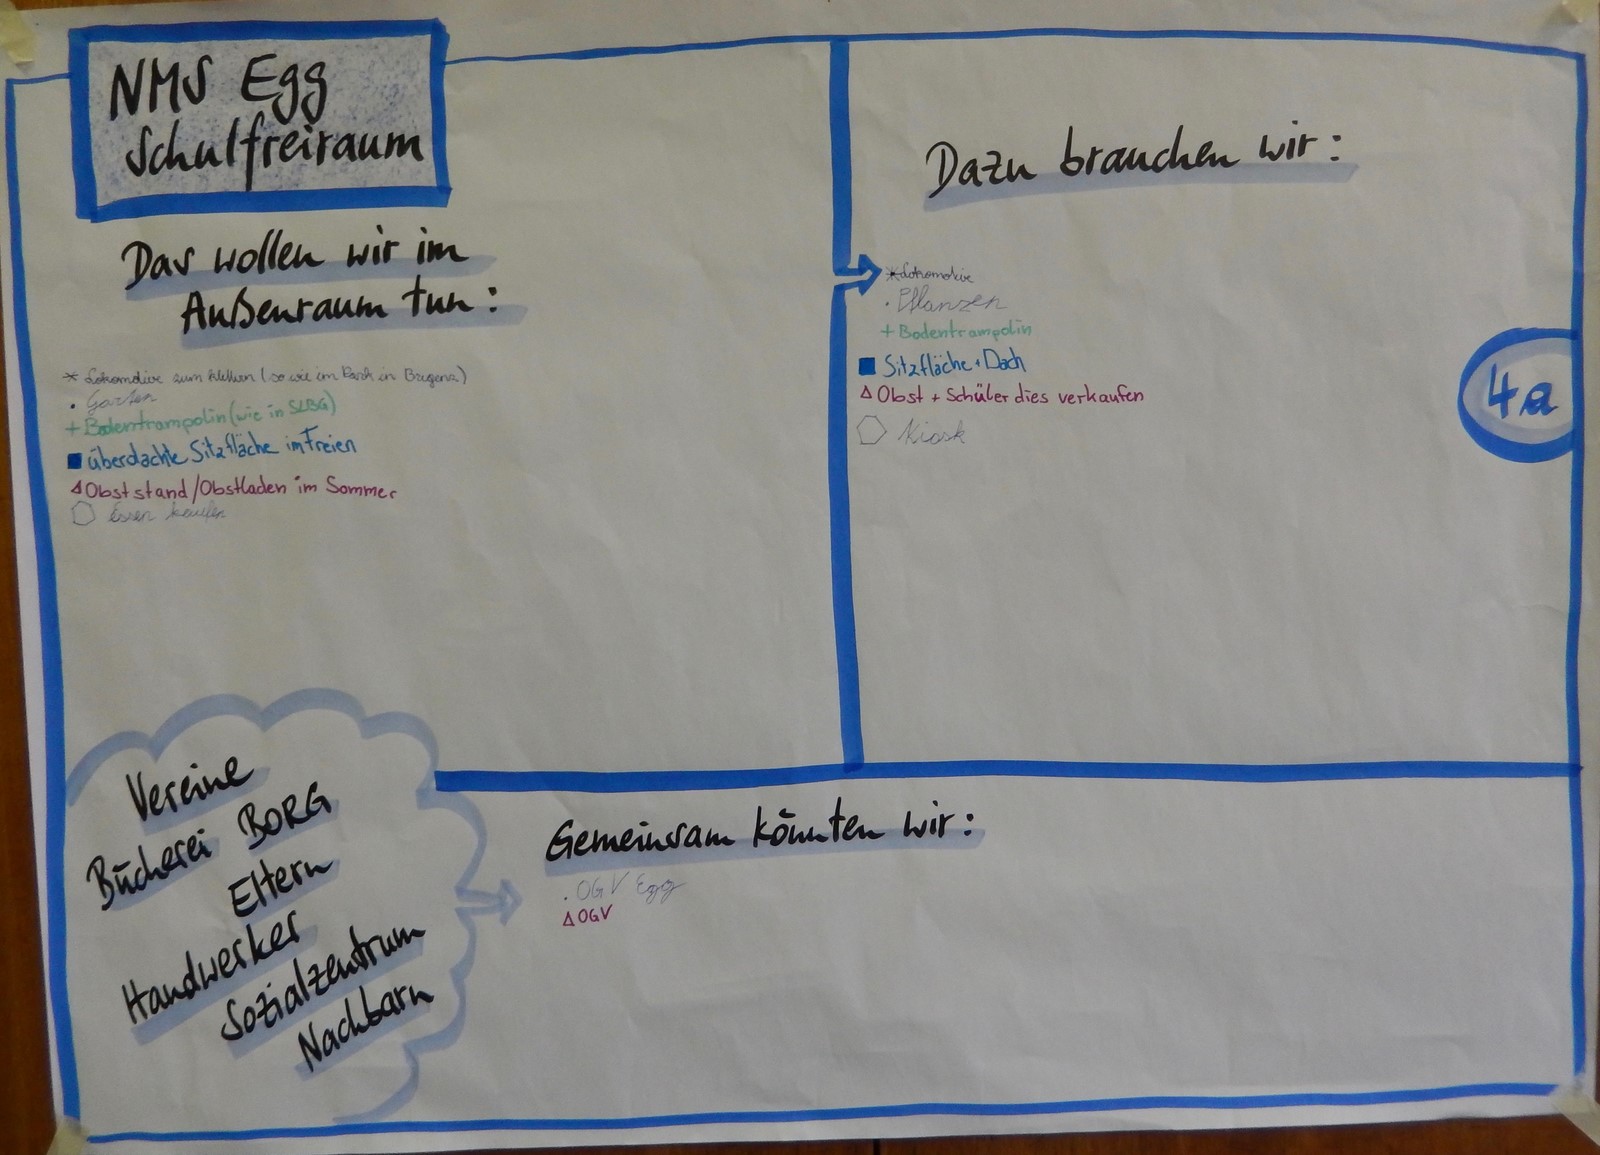 NMS Egg
Schulfreiraum
Das wollen wir im
Außenraum tun:
* Lokomotive zum klettern (so wie im Park in Bregenz)
• Garten
+ Bodentrampolin (wie in SLBG)
■ überdachte Sitzfläche im Freien
△ Obststand/Obstladen im Sommer
⬡ Essen kaufen
Dazu brauchen wir:
* Lokomotive
• Pflanzen
+ Bodentrampolin
■ Sitzfläche + Dach
△ Obst + Schüler dies verkaufen
⬡ Kiosk
4a
Vereine
Bücherei BORG
Eltern
Handwerker
Sozialzentrum
Nachbarn
Gemeinsam könnten wir:
• OGV Egg
△ OGV